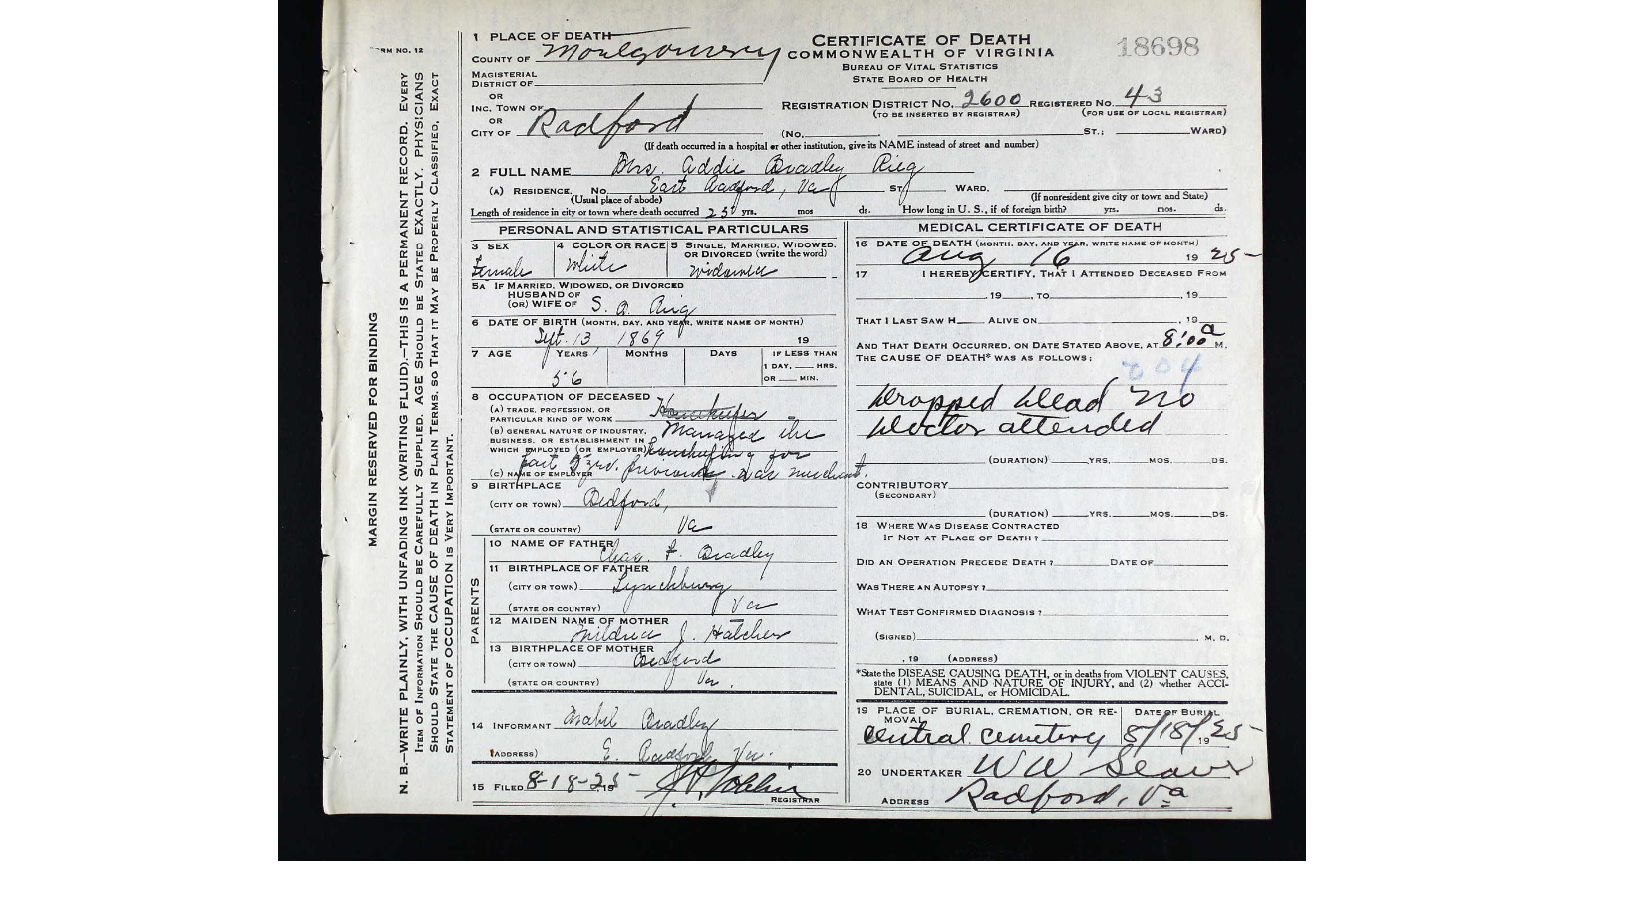 FORM NO. 12
MARGIN RESERVED FOR BINDING
N. B.—WRITE PLAINLY, WITH UNFADING INK (WRITING FLUID).—THIS IS A PERMANENT RECORD. EVERY
ITEM OF INFORMATION SHOULD BE CAREFULLY SUPPLIED. AGE SHOULD BE STATED EXACTLY. PHYSICIANS
SHOULD STATE THE CAUSE OF DEATH IN PLAIN TERMS, SO THAT IT MAY BE PROPERLY CLASSIFIED. EXACT
STATEMENT OF OCCUPATION IS VERY IMPORTANT.
1 PLACE OF DEATH
COUNTY OF Montgomery
MAGISTERIAL
DISTRICT OF
OR
INC. TOWN OF
OR
CITY OF Radford
CERTIFICATE OF DEATH
COMMONWEALTH OF VIRGINIA
BUREAU OF VITAL STATISTICS
STATE BOARD OF HEALTH
18698
REGISTRATION DISTRICT NO. 2600 REGISTERED NO. 43
(TO BE INSERTED BY REGISTRAR) (FOR USE OF LOCAL REGISTRAR)
(No. ST.; WARD)
(If death occurred in a hospital or other institution, give its NAME instead of street and number)
2 FULL NAME Mrs. Addie Bradley
(A) RESIDENCE. No. East Radford, Va ST. WARD.
(Usual place of abode) (If nonresident give city or town and State)
Length of residence in city or town where death occurred 25 yrs. mos ds. How long in U. S., if of foreign birth? yrs. mos. ds.
PERSONAL AND STATISTICAL PARTICULARS
3 SEX 4 COLOR OR RACE 5 SINGLE, MARRIED, WIDOWED, OR DIVORCED (write the word)
Female White Widowed
5A IF MARRIED, WIDOWED, OR DIVORCED
HUSBAND OF
(OR) WIFE OF S.
6 DATE OF BIRTH (MONTH, DAY, AND YEAR, WRITE NAME OF MONTH)
Sept. 13 1869 19
7 AGE YEARS MONTHS DAYS IF LESS THAN
1 DAY, HRS.
56 OR MIN.
8 OCCUPATION OF DECEASED
(A) TRADE, PROFESSION, OR
PARTICULAR KIND OF WORK Housekeeper
(B) GENERAL NATURE OF INDUSTRY, Managed the
BUSINESS, OR ESTABLISHMENT IN
WHICH EMPLOYED (OR EMPLOYER) housekeeping for
past 2 yrs. previously was merchant.
(C) NAME OF EMPLOYER
9 BIRTHPLACE
(CITY OR TOWN) Bedford,
(STATE OR COUNTRY) Va
PARENTS
10 NAME OF FATHER Chas. F. Bradley
11 BIRTHPLACE OF FATHER
(CITY OR TOWN) Lynchburg
(STATE OR COUNTRY) Va
12 MAIDEN NAME OF MOTHER
Mildred J. Hatcher
13 BIRTHPLACE OF MOTHER
(CITY OR TOWN) Bedford
(STATE OR COUNTRY) Va.
14 INFORMANT Isabel Bradley
(ADDRESS) E. Radford, Va.
15 FILED 8-18-25 19
REGISTRAR
MEDICAL CERTIFICATE OF DEATH
16 DATE OF DEATH (MONTH, DAY, AND YEAR, WRITE NAME OF MONTH)
Aug 16 19 25
17 I HEREBY CERTIFY, THAT I ATTENDED DECEASED FROM
, 19 , TO , 19
THAT I LAST SAW H ALIVE ON , 19
AND THAT DEATH OCCURRED, ON DATE STATED ABOVE, AT 8:00 a M.
THE CAUSE OF DEATH* WAS AS FOLLOWS:
204
Dropped Dead No
Doctor attended
(DURATION) YRS. MOS. DS.
CONTRIBUTORY
(SECONDARY)
(DURATION) YRS. MOS. DS.
18 WHERE WAS DISEASE CONTRACTED
IF NOT AT PLACE OF DEATH?
DID AN OPERATION PRECEDE DEATH? DATE OF
WAS THERE AN AUTOPSY?
WHAT TEST CONFIRMED DIAGNOSIS?
(SIGNED) , M. D.
, 19 (ADDRESS)
*State the DISEASE CAUSING DEATH, or in deaths from VIOLENT CAUSES,
state (1) MEANS AND NATURE OF INJURY, and (2) whether ACCI-
DENTAL, SUICIDAL, or HOMICIDAL.
19 PLACE OF BURIAL, CREMATION, OR RE-
MOVAL DATE OF BURIAL
Central Cemetery 8/18/ 19 25
20 UNDERTAKER W W Seaver
ADDRESS Radford, Va